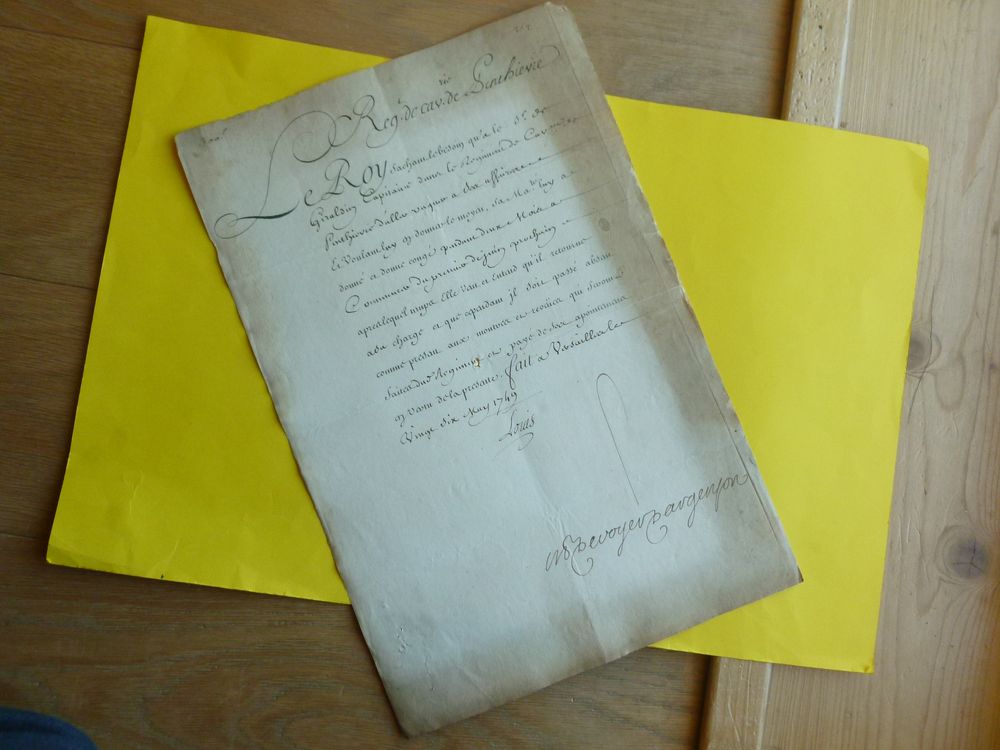 Regt. de cav. de Penthievre
Le Roy Sachant le besoin qu'a le Sr. de
Giraldin Capitaine dans le Regiment de Cavalerie
Penthievre d'aller vaquer a ses affaires
Et Voulant luy en donner le moyen, Sa Maté. luy a
donné et donne congé pendant deux Mois a
Commencer du premier de juin prochain
apres lequel temps Elle Veut et Entend qu'il retourne
a sa charge et que cependant il soit passé absent
comme present aux montres et reveües qui Seront
faites dud. Regiment et payé de ses apointemens
en vertu de la presente. fait a Versailles le
Vingt Six May 1749
Louis
M P de voyer d'argenson